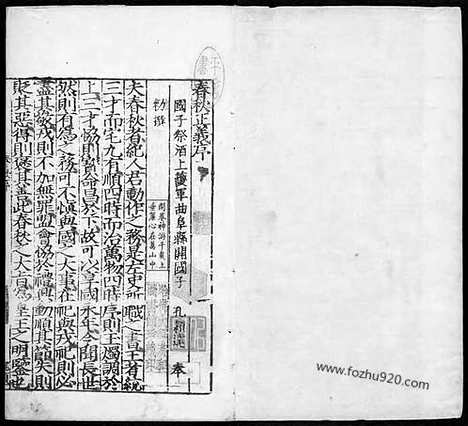 春秋正義序
國子祭酒上護軍曲阜縣開國子臣孔穎達奉
勑撰
夫春秋者紀人君動作之務是左史所職之書王者統
三才而宅九有順四時而治萬物四時序則玉燭調於
上三才協則寶命昌於下故可以享國永年令聞長世
然則有為之務可不慎與國之大事在祀與戎祀則必
盡其敬戎則不加無罪盟會協於禮興動順其節失則
貶其惡得則襃其善此春秋之大旨為皇王之明鑒也
www.fozhu920.com